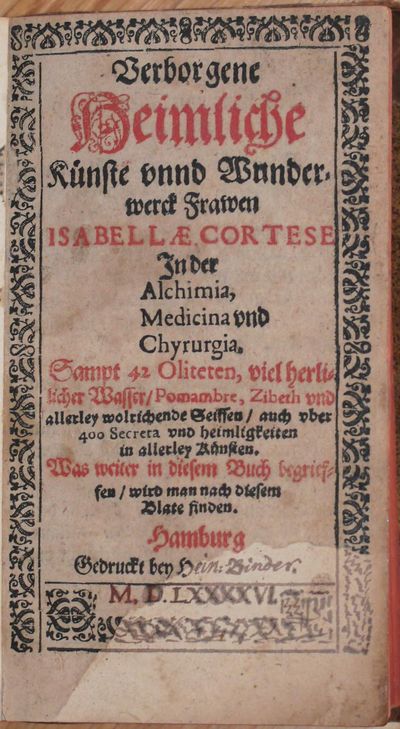 Verborgene
Heimliche
Künste vnnd Wunder-
werck Frawen
ISABELLÆ CORTESE
In der
Alchimia,
Medicina vnd
Chyrurgia.
Sampt 42 Oliteten, viel herli-
licher Wasser/ Pomambre, Zibeth vnd
allerley wolrichende Seiffen/ auch vber
400 Secreta vnd heimligkeiten
in allerley Künsten.
Was weiter in diesem Buch begrief-
fen/ wird man nach diesem
Blate finden.
Hamburg
Gedruckt bey Hein: Binder.
M. D. LXXXXVI.